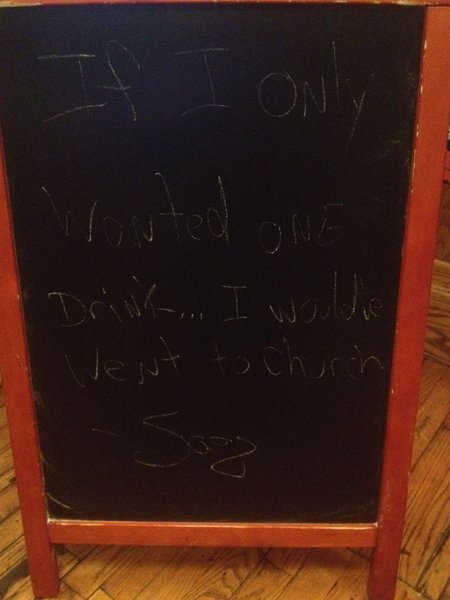 If I only
Wanted ONE
Drink... I would've
Went to Church
- Sooz